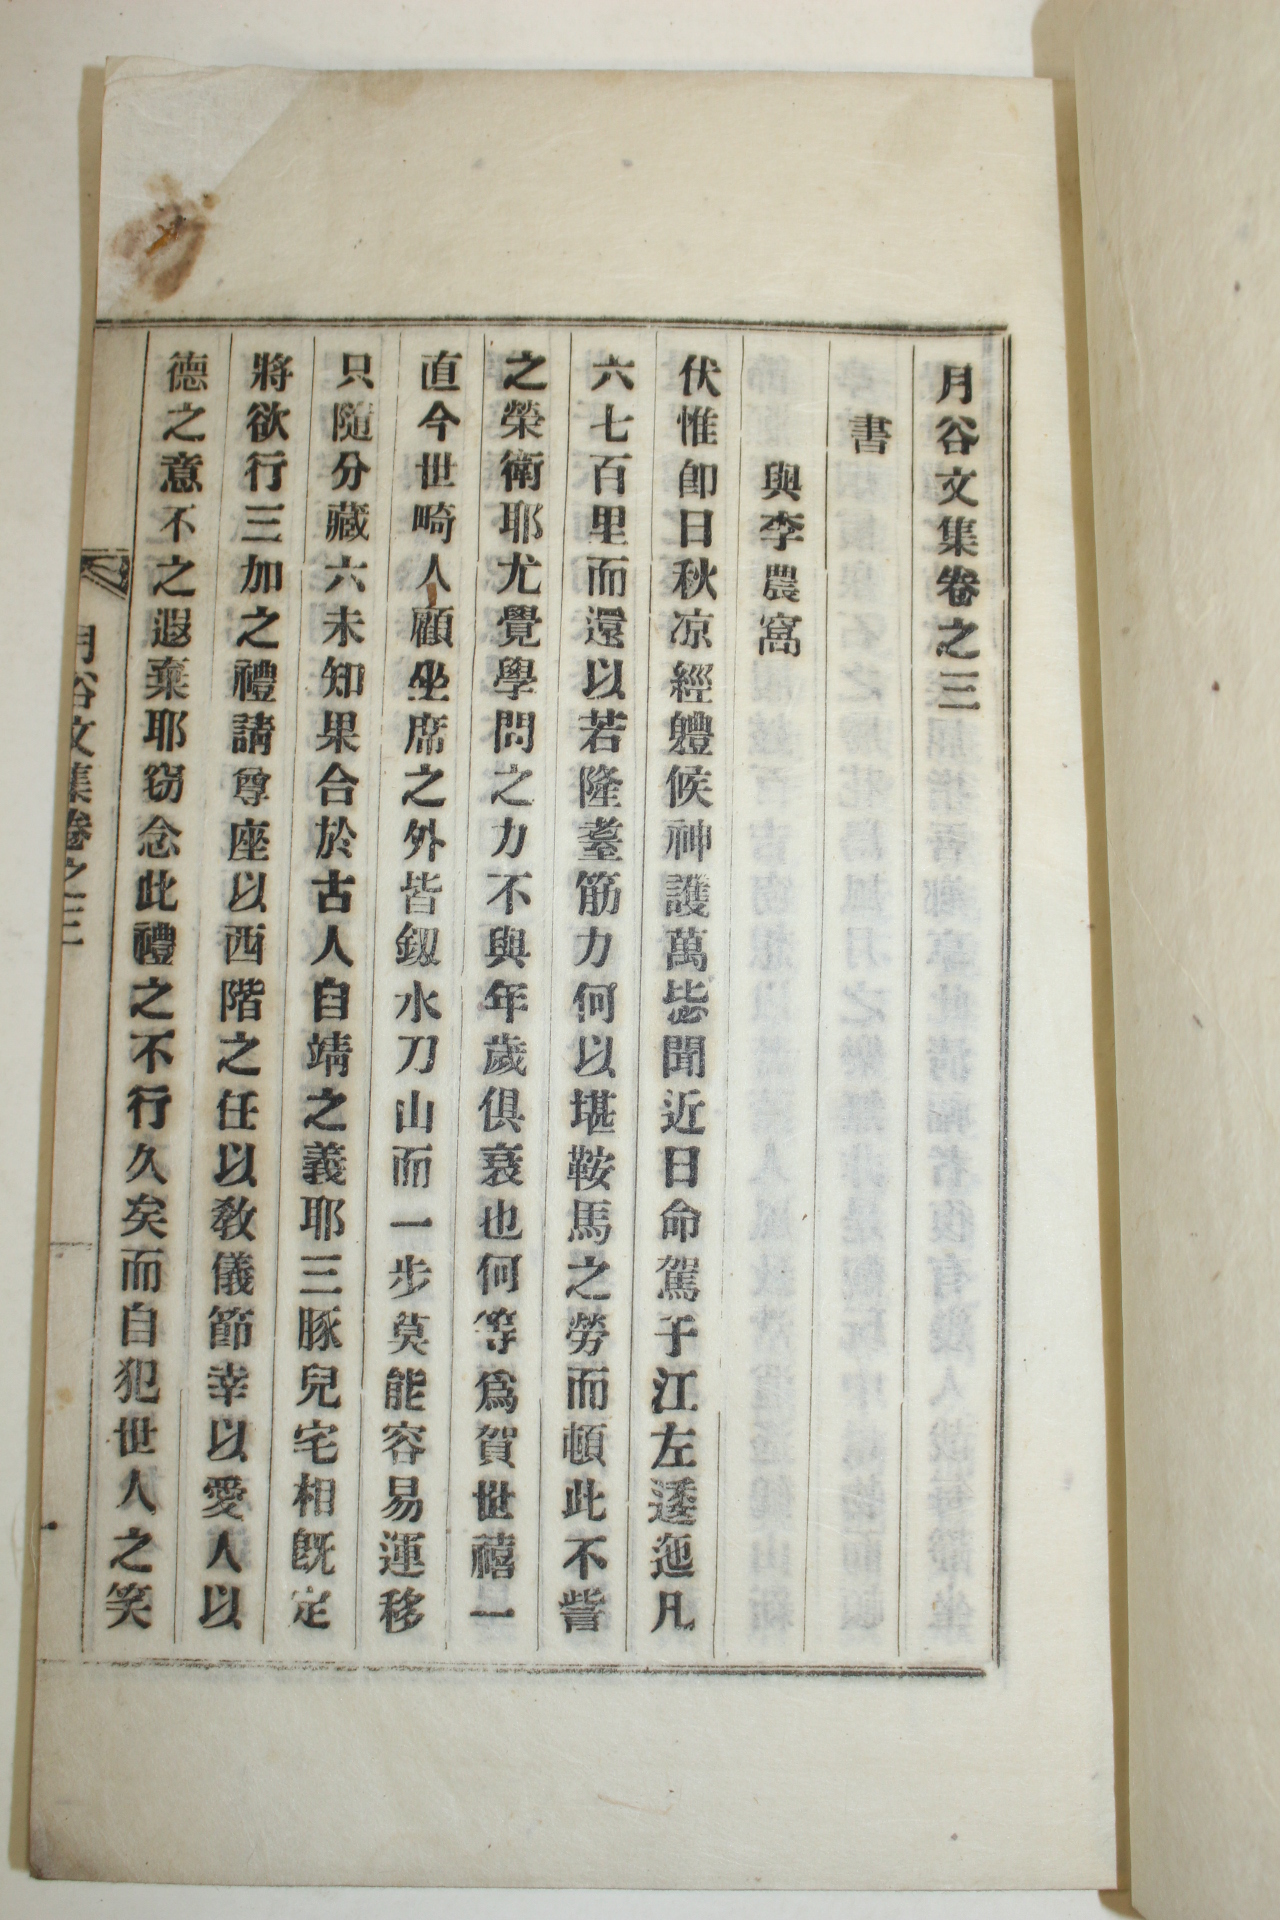 月谷文集卷之三
書
與李農窩
伏惟卽日秋凉經軆候神護萬毖聞近日命駕于江左逶迤凡
六七百里而還以若隆耋筋力何以堪鞍馬之勞而頓此不訾
之榮衛耶尤覺學問之力不與年歲俱衰也何等爲賀世禧一
直今世畸人顧坐席之外皆釼水刀山而一步莫能容易運移
只隨分藏六未知果合於古人自靖之義耶三豚兒宅相旣定
將欲行三加之禮請尊座以西階之任以敎儀節幸以愛人以
德之意不之遐棄耶窃念此禮之不行久矣而自犯世人之笑
月谷文集卷之三